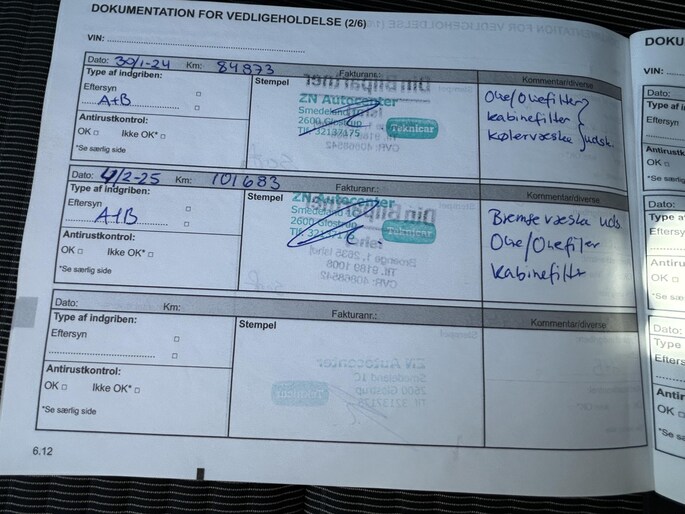 DOKUMENTATION FOR VEDLIGEHOLDELSE (2/6)
VIN:
Dato: 30/1-24 Km: 84973 Fakturanr.:
Type af indgriben: Stempel Kommentar/diverse
Eftersyn
A+B
ZN Autocenter
Smedeland
2600 Glostrup
Tlf. 32137175
Teknicar
Olie/Oliefilter
kabinefilter
kølervæske udsk.
Antirustkontrol:
OK Ikke OK*
*Se særlig side
Dato: 4/2-25 Km: 101683 Fakturanr.:
Type af indgriben: Stempel Kommentar/diverse
Eftersyn
A+B
ZN Autocenter
Smedeland
2600 Glostrup
Teknicar
Bremsevæske uds
Olie/Oliefilter
kabinefilter
Antirustkontrol:
OK Ikke OK*
*Se særlig side
Dato: Km: Fakturanr.:
Type af indgriben: Stempel Kommentar/diverse
Eftersyn
Antirustkontrol:
OK Ikke OK*
*Se særlig side
6.12
DOKU
VIN:
Dato:
Type af i
Eftersyn
Antirustk
OK
*Se sær
Dato:
Type a
Eftersy
Antirus
OK
*Se sæ
Dato:
Type
Efters
Antir
OK
*Se sæ